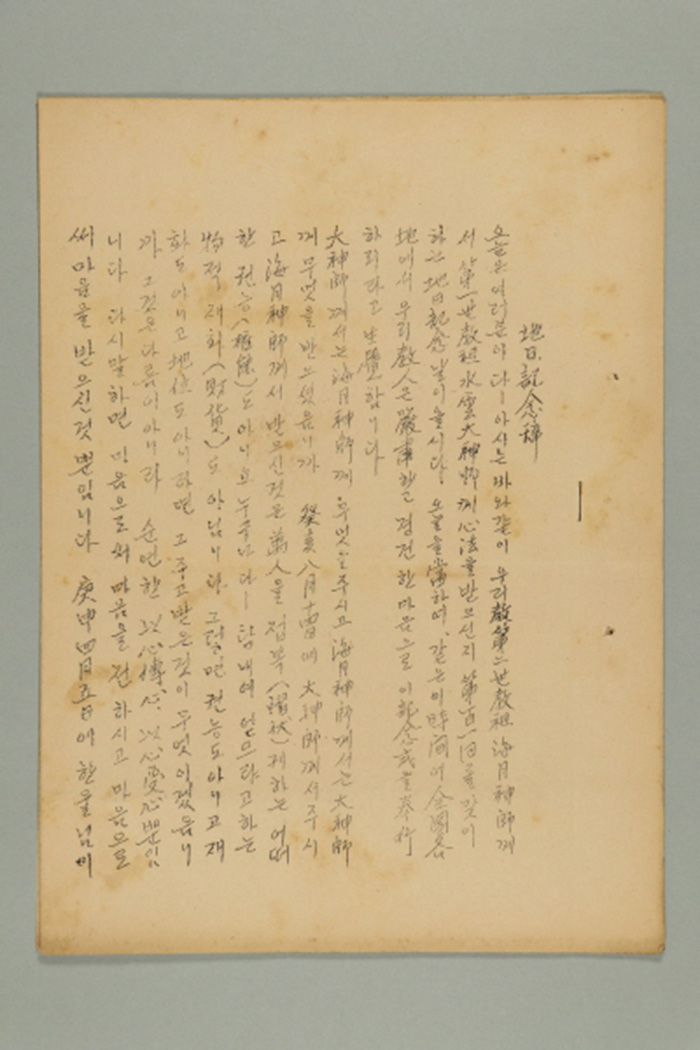 地日記念辞
오늘은 여러분이 다ㅡ아시는 바와 같이 우리 敎 第二世敎祖 海月神師께
서 第一世敎祖 水雲大神師께 心法을 받으신지 第百一回를 맞이
하는 地日記念날이 올시다. 오늘을 當하여, 같은 이 時間에 全國各
地에서 우리 敎人은 嚴肅하고 경건한 마음으로 이 記念式을 奉行
하리라고 生覺합니다
大神師께서는 海月神師께 무엇을 주시고 海月神師께서는 大神師
께 무엇을 받으셨읍니까 癸亥八月十四日에 大神師께서 주시
고 海月神師께서 받으신것은 萬人을 접복(慴伏)케하는 어떠
한 권능(權能)도 아니고 누구나 다ㅡ 탐내여 얻으랴고 하는
物的 재화(財貨)도 아닙니다. 그러면 권능도 아니고 재
화도 아니고 地位도 아니라면 그 주고 받은것이 무엇이겠읍니
까 그것은 다름이 아니라 순연한 以心傳心, 以心受心뿐입
니다 다시 말하면 마음으로써 마음을 전하시고 마음으로
써 마음을 받으신것 뿐입니다 庚申四月五日에 한울님이